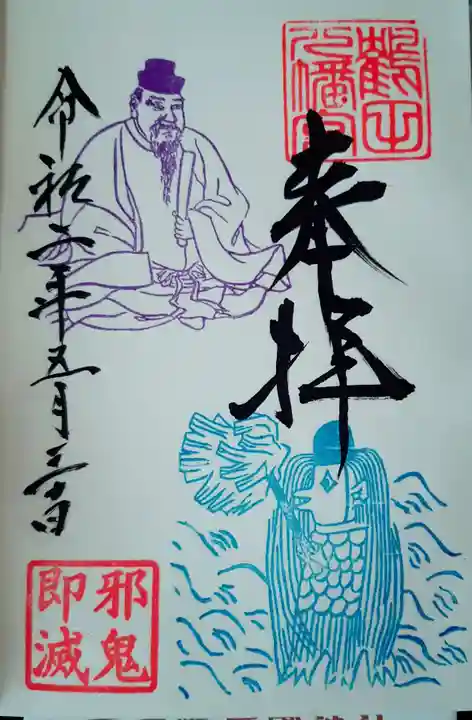 八幡宮
奉拝
令和二年五月三十日
邪鬼
即滅